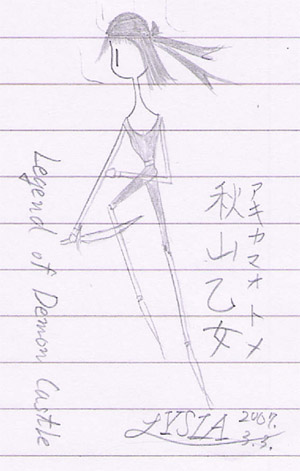 Legend of Demon Castle
アキヤマオトメ
秋山乙女
LYSIA 2007.
3.3.